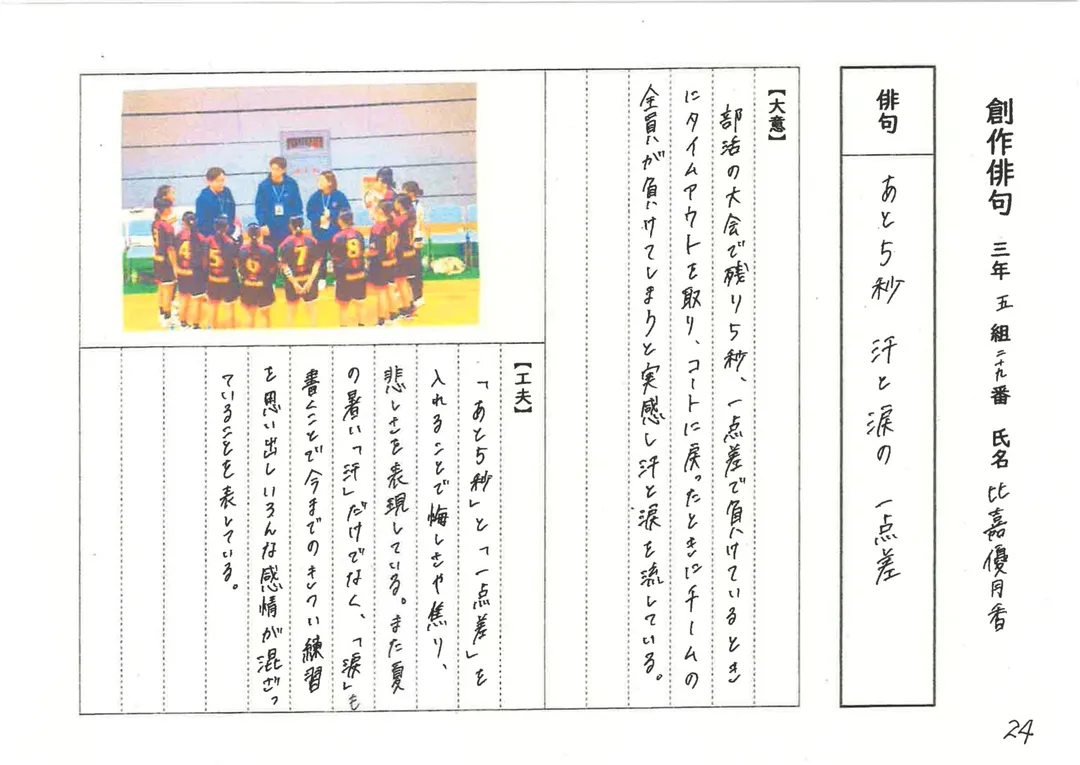 創作俳句 三年 五組 二十九番 氏名 比嘉優月香
俳句
あと5秒 汗と涙の 一点差
【大意】
部活の大会で残り5秒、一点差で負けているとき
にタイムアウトを取り、コートに戻ったときにチームの
全員が負けてしまうと実感し汗と涙を流している。
【工夫】
「あと5秒」と「一点差」を
入れることで悔しさや焦り、
悲しさを表現している。また夏
の暑い「汗」だけでなく、「涙」も
書くことで今までのきつい練習
を思い出しいろんな感情が混ざっ
ていることを表している。
4
5
6
7
8
24